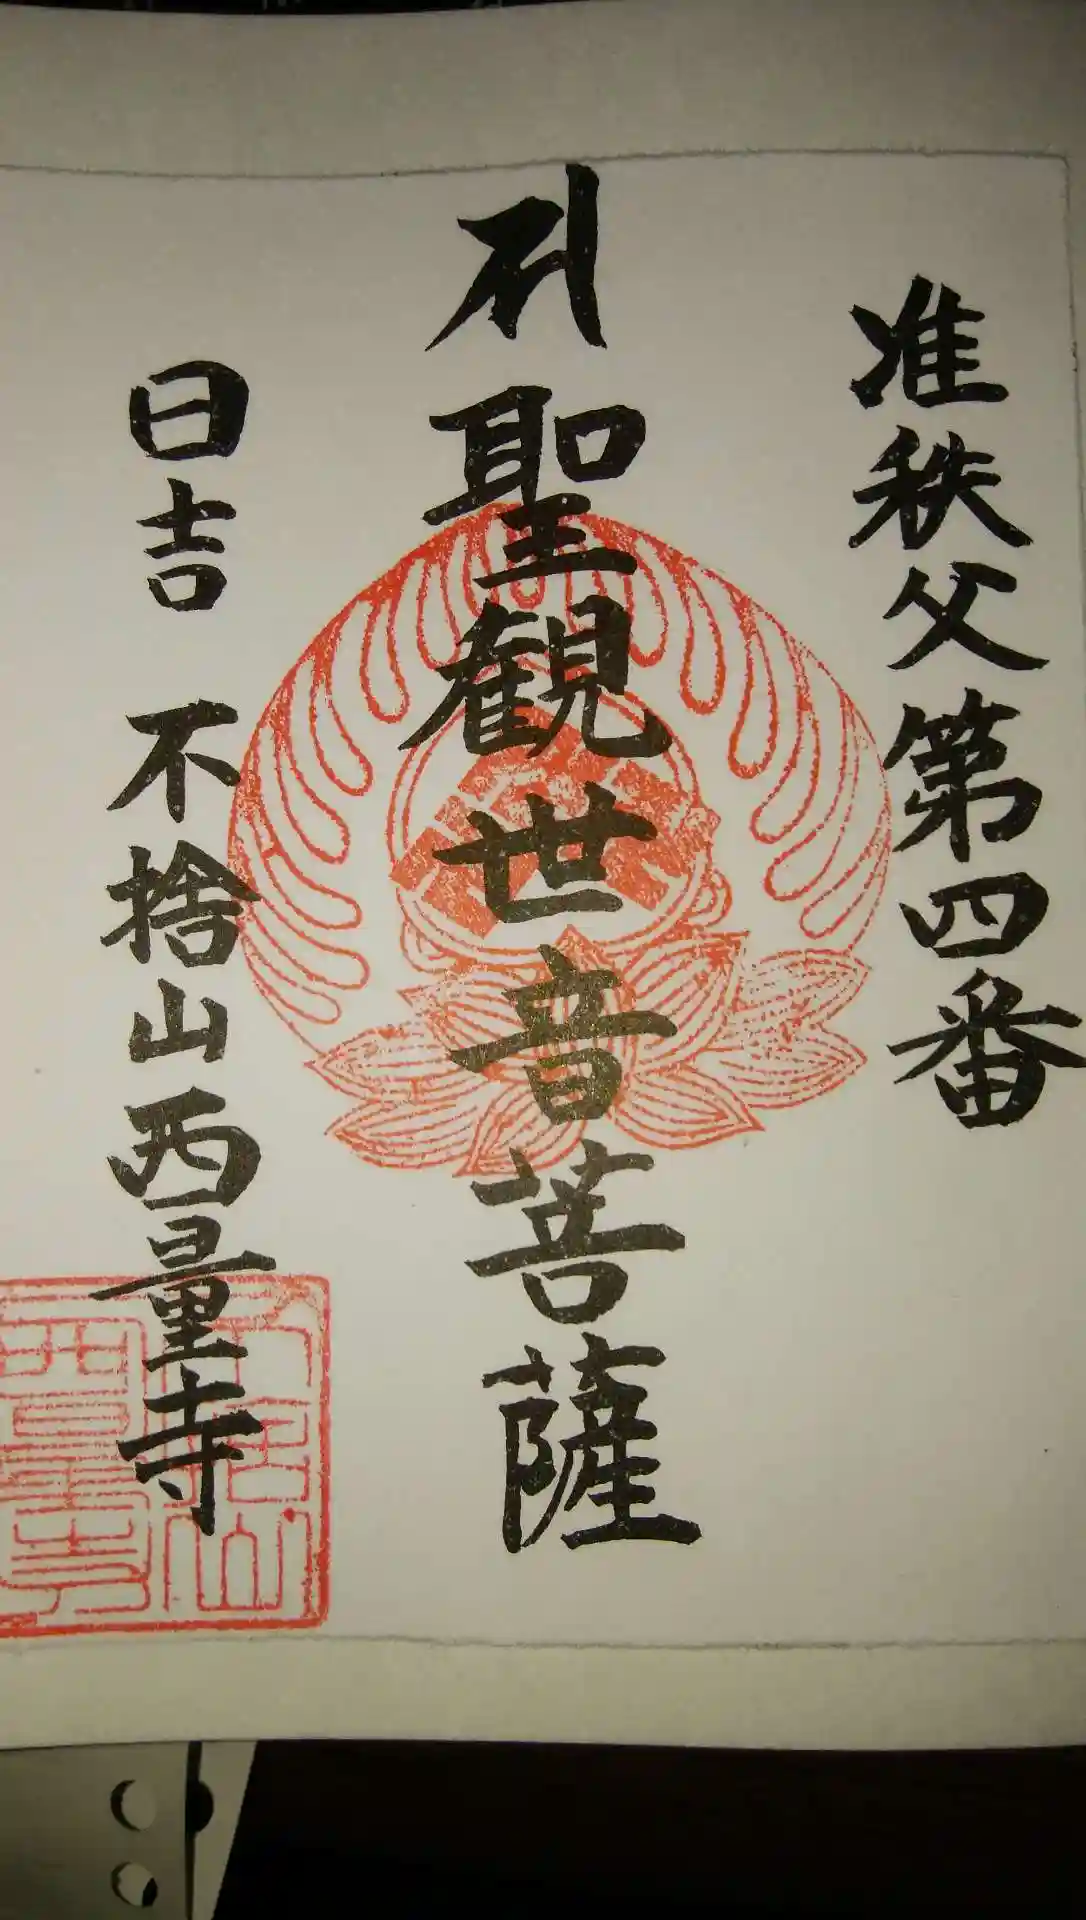 准秩父第四番
聖観世音菩薩
日吉 不捨山西量寺